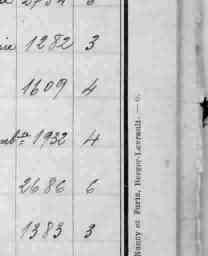 1282 3
1609 4
1932 4
2686 6
1383 3
Nancy et Paris, Berger-Levrault. — 6.